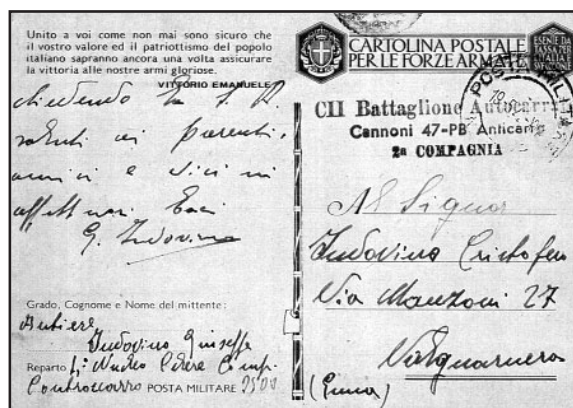 Unito a voi come non mai sono sicuro che
il vostro valore ed il patriottismo del popolo
italiano sapranno ancora una volta assicurare
la vittoria alle nostre armi gloriose.
VITTORIO EMANUELE
chiedendo
saluti ai parenti,
amici e vicini
affettuosi baci
G. Indovino
Grado, Cognome e Nome del mittente:
Artiere
Indovino Giuseppe
Reparto 4° Nucleo
Controcarro POSTA MILITARE
CARTOLINA POSTALE
PER LE FORZE ARMATE
ESENTE DA
TASSA PER
POSTA MILI
CII Battaglione Autocarri
Cannoni 47-PB Anticarro
2a COMPAGNIA
Al Signor
Indovino Cristofero
Via Manzoni 27
Valguarnera
(Enna)